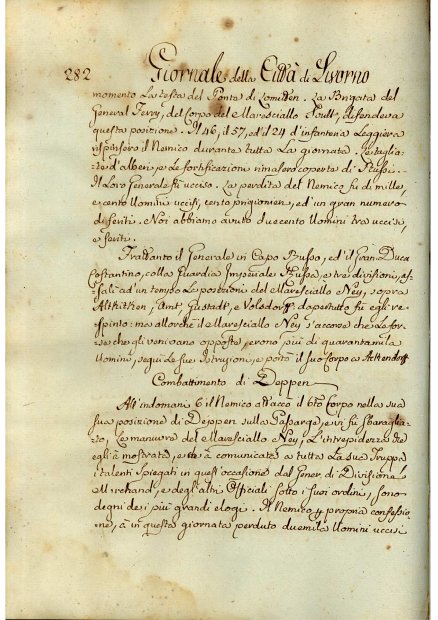 282 Giornale della Città di Livorno
momento La testa del Ponte di Lomitten. La Brigata del
General Ferry, del Corpo del Maresciallo Soult, difendeva
questa posizione. Il 46, il 57, ed il 24 d'infanteria Leggiera
rispinsero il Nemico durante tutta La giornata. Le taglia-
te d'alberi e Le fortificazioni rimasero coperte di Russi.
Il Loro Generale fù ucciso. La perdita del Nemico fù di mille,
e cento Uomini uccisi, cento prigionieri, ed un gran numero
di feriti. Noi abbiamo avuto duecento Uomini tra uccisi,
e feriti.
Frattanto il Generale in Capo Russo, ed il Gran Duca
Costantino, colla Guardia Imperiale Russa, e tre divisioni, as-
salì ad un tempo Le posizioni del Maresciallo Ney, sopra
Altkirken, Amt, Gustadt, e Volsdorff. dapertutto fù egli re-
spinto: ma allorchè il Maresciallo Ney s'accorse che Le for-
ze che gli venivano opposte erono più di quarantamila
Uomini, seguì Le sue Istruzioni, e portò il suo Corpo a Ackendorff.
Combattimento di Deppen
All'indomani 6 il Nemico attaccò il 6to Corpo nella sua
sua posizione di Deppen sulla Passarge, e vi fù sbaraglia-
to, Le manuvre del Maresciallo Ney, L'intrepidezza che
egli à mostrata, e che à comunicata a tutta La sua Truppa
i talenti spiegati in quest'occasione dal Gener. di Divisione
Marchand, e degl'altri Officiali sotto i suoi ordini, sono
degni de i più grandi elogi. Il Nemico p propria confessio-
ne, à in questa giornata perduto duemila Uomini uccisi